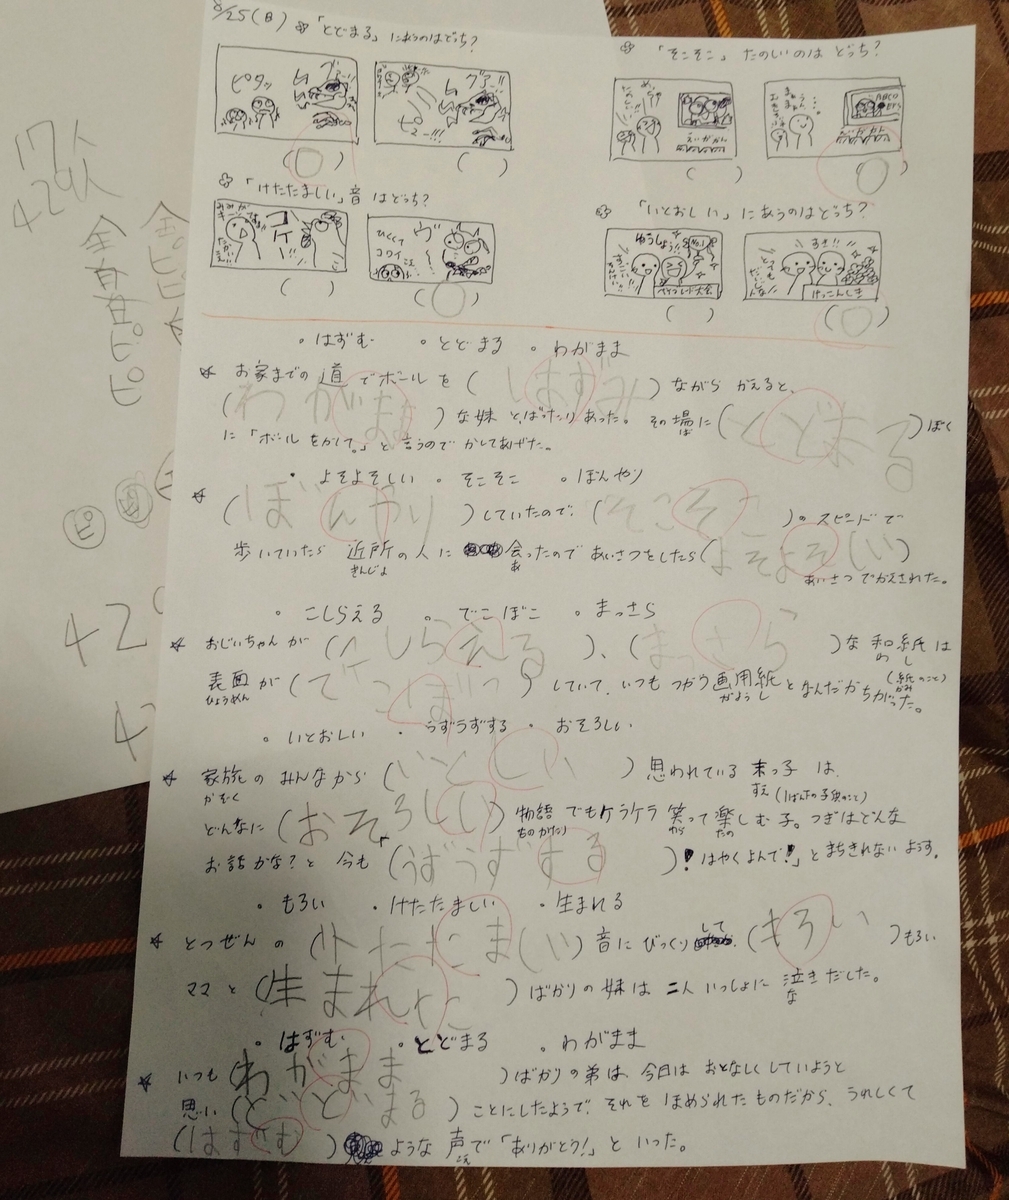 8/25(日) 「とどまる」にあうのはどっち?
ピタッ
グアー!!
ピュー!!!
「そこそこ」たのしいのは どっち?
えいがかん
えいがかん
「けたたましい」音はどっち?
みみが
キーンってする!!
コケー!!
ひくくて
コワイ
「いとおしい」にあうのはどっち?
ゆうしょう!!
No.1
ベイブレード大会
とっても
だいじ
けっこんしき
17人
42人
全員
ピ
・はずむ ・とどまる ・わがまま
お家までの道でボールを(はずみ)ながら かえると、
(わがまま)な妹と、ばったりあった。その場に(とどまる)ぼく
ば
に「ボールをかして。」と言うので かしてあげた。
・よそよそしい ・そこそこ ・ぼんやり
(ぼんやり)していたので、(そこそこ)のスピードで
歩いていたら 近所の人に 会ったので あいさつをしたら(よそよそしい)
きんじょ あ
あいさつでかえされた。
・こしらえる ・でこぼこ ・まっさら
おじいちゃんが(こしらえる)、(まっさら)な 和紙は
わ し
(紙のこと)
かみ
表面が(でこぼこ)していて、いつも つかう画用紙となんだかちがった。
ひょうめん がようし
・いとおしい ・うずうずする ・おそろしい
家族の みんなから(いとしい)思われている 末っ子 は、
かぞく すえ (1ばん下の子供のこと)
どんなに(おそろしい)物語 でもケラケラ 笑って楽しむ子。つぎはどんな
ものがたり わら たの
お話かな?と 今も(うずうずする)!はやくよんで!」とまちきれないようす。
・もろい ・けたたましい ・生まれる
とつぜんの(けたたましい)音に びっくりして、(もろい)もろい
ママと(生まれた)ばかりの妹は 二人 いっしょに 泣きだした。
な
・はずむ ・とどまる ・わがまま
いつも(わがまま)ばかりの弟は、今日は おとなしくしていようと
思い(とどまる)ことにしたようで、それを ほめられたものだから、うれしくて
(はずむ)ような 声で「ありがとう!」と いった。
こえ